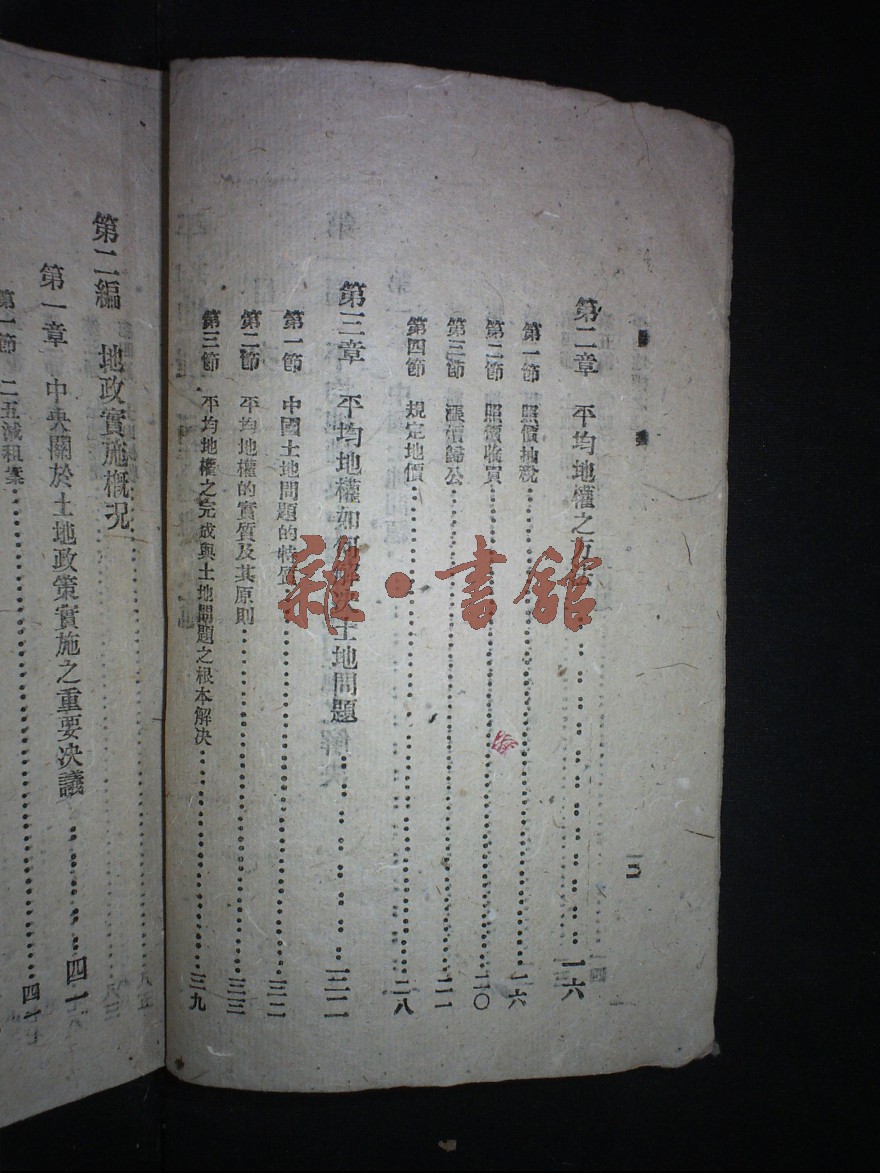 第二章 平均地權之方法 一六
第一節 照價抽稅 一六
第二節 照價收買 二〇
第三節 漲價歸公 二一
第四節 規定地價 二八
第三章 平均地權如何解決土地問題 三二
第一節 中國土地問題的特質 三二
第二節 平均地權的實質及其原則 三三
第三節 平均地權之完成與土地問題之根本解決 三九
第二編 地政實施概況
第一章 中央關於土地政策實施之重要决議 四一
第一節 二五減租案 四一
雜·書館